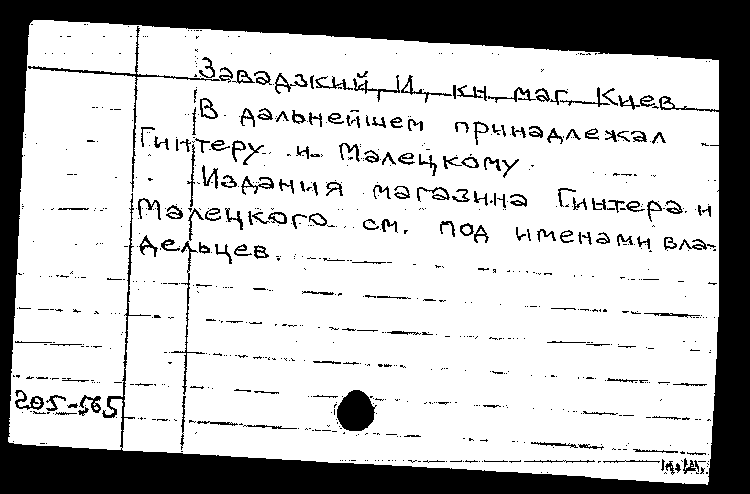 Завадзкий, И., кн. маг. Киев.
В дальнейшем принадлежал
Гинтеру и Малецкому.
Издания магазина Гинтера и
Малецкого см. под именами вла-
дельцев.
205-565